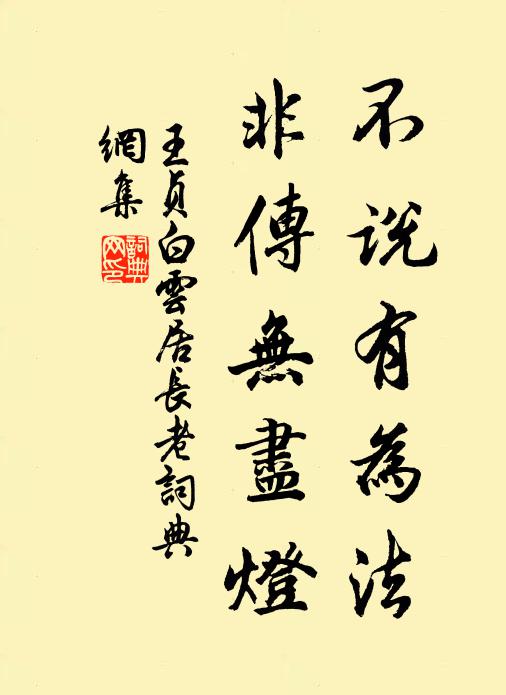 不說有為法
非傳無盡燈
王貞白雲居長老詞典
網集
詞典
网印